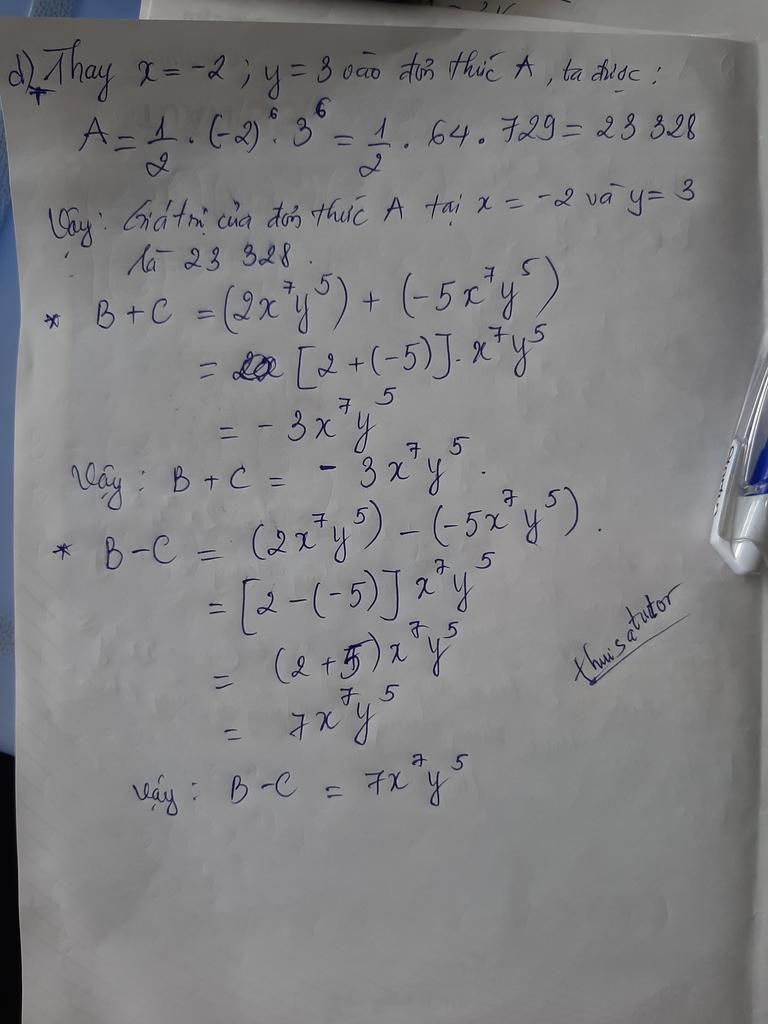 d) Thay x = -2 ; y = 3 vào đơn thức A, ta được :
* A = 1/2 . (-2)⁶ . 3⁶ = 1/2 . 64 . 729 = 23 328
Vậy : Giá trị của đơn thức A tại x = -2 và y = 3
là 23 328 .
* B + C = (2x⁷y⁵) + (-5x⁷y⁵)
= [2 + (-5)] . x⁷y⁵
= - 3x⁷y⁵
Vậy : B + C = - 3x⁷y⁵ .
* B - C = (2x⁷y⁵) - (-5x⁷y⁵) .
= [2 - (-5)] x⁷y⁵
= (2 + 5) x⁷y⁵
= 7x⁷y⁵
thuisatutor
Vậy : B - C = 7x⁷y⁵